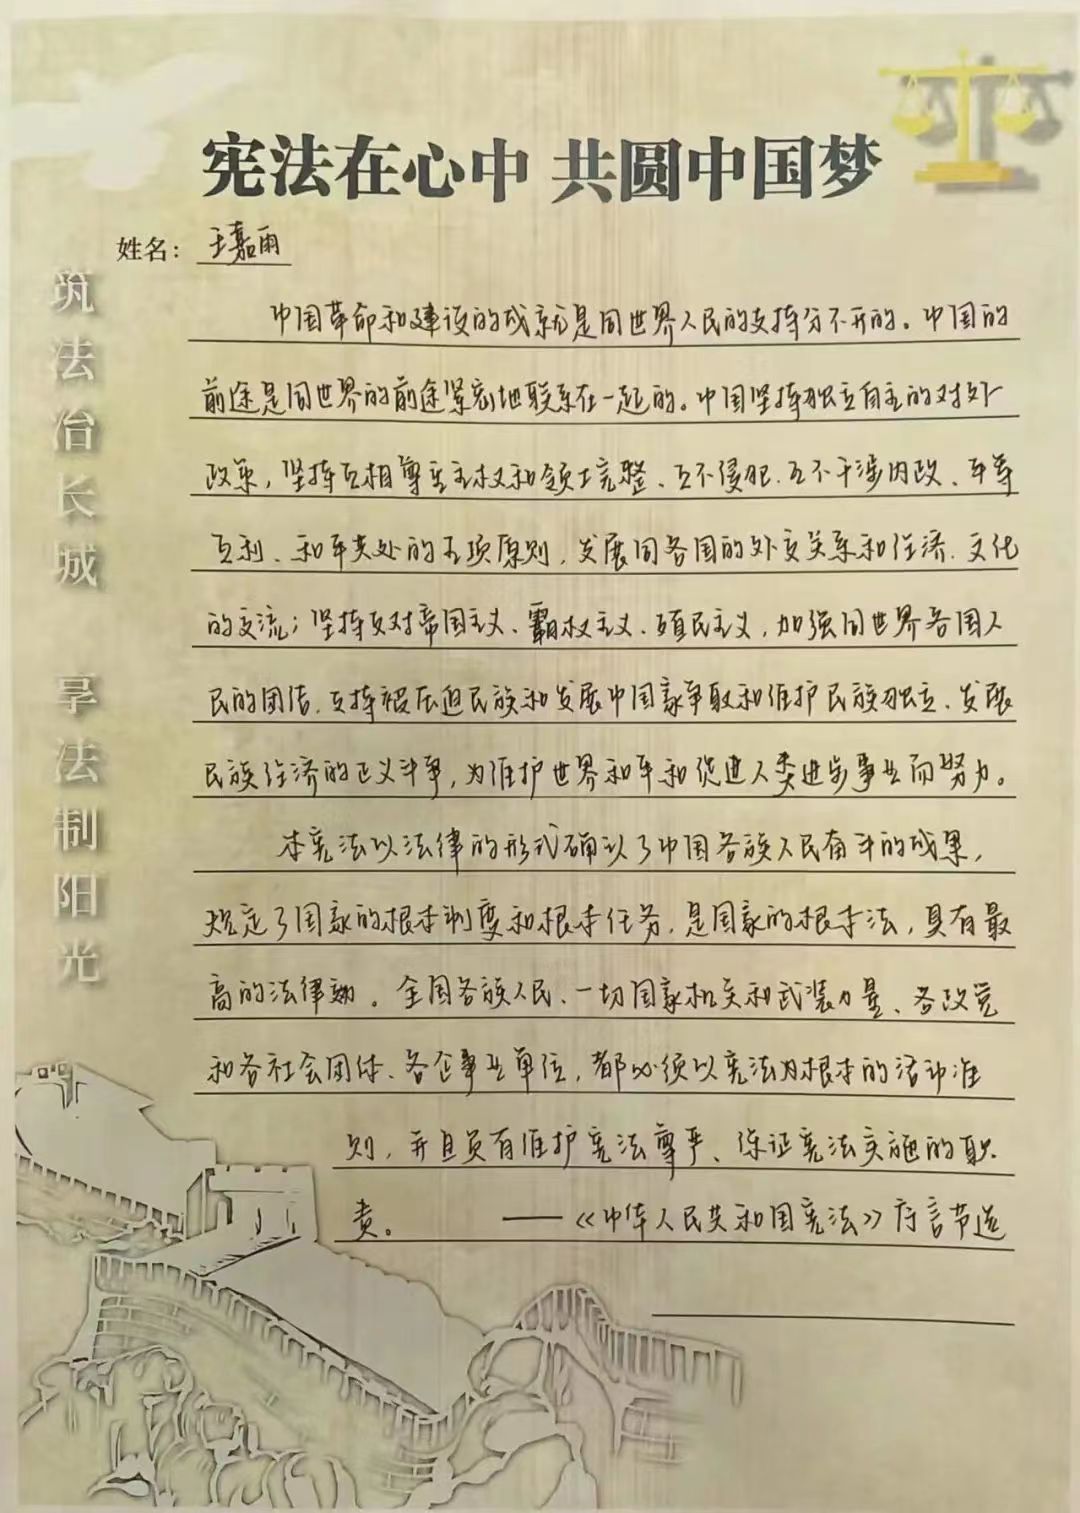 宪法在心中 共圆中国梦
姓名：王嘉雨
筑法治长城 享法制阳光
中国革命和建设的成就是同世界人民的支持分不开的。中国的
前途是同世界的前途紧密地联系在一起的。中国坚持独立自主的对外
政策，坚持互相尊重主权和领土完整、互不侵犯、互不干涉内政、平等
互利、和平共处的五项原则，发展同各国的外交关系和经济、文化
的交流；坚持反对帝国主义、霸权主义、殖民主义，加强同世界各国人
民的团结，支持被压迫民族和发展中国家争取和维护民族独立、发展
民族经济的正义斗争，为维护世界和平和促进人类进步事业而努力。
本宪法以法律的形式确认了中国各族人民奋斗的成果，
规定了国家的根本制度和根本任务，是国家的根本法，具有最
高的法律効。全国各族人民、一切国家机关和武装力量、各政党
和各社会团体、各企事业单位，都必须以宪法为根本的活动准
则，并且负有维护宪法尊严、保证宪法实施的职
责。 ——《中华人民共和国宪法》序言节选